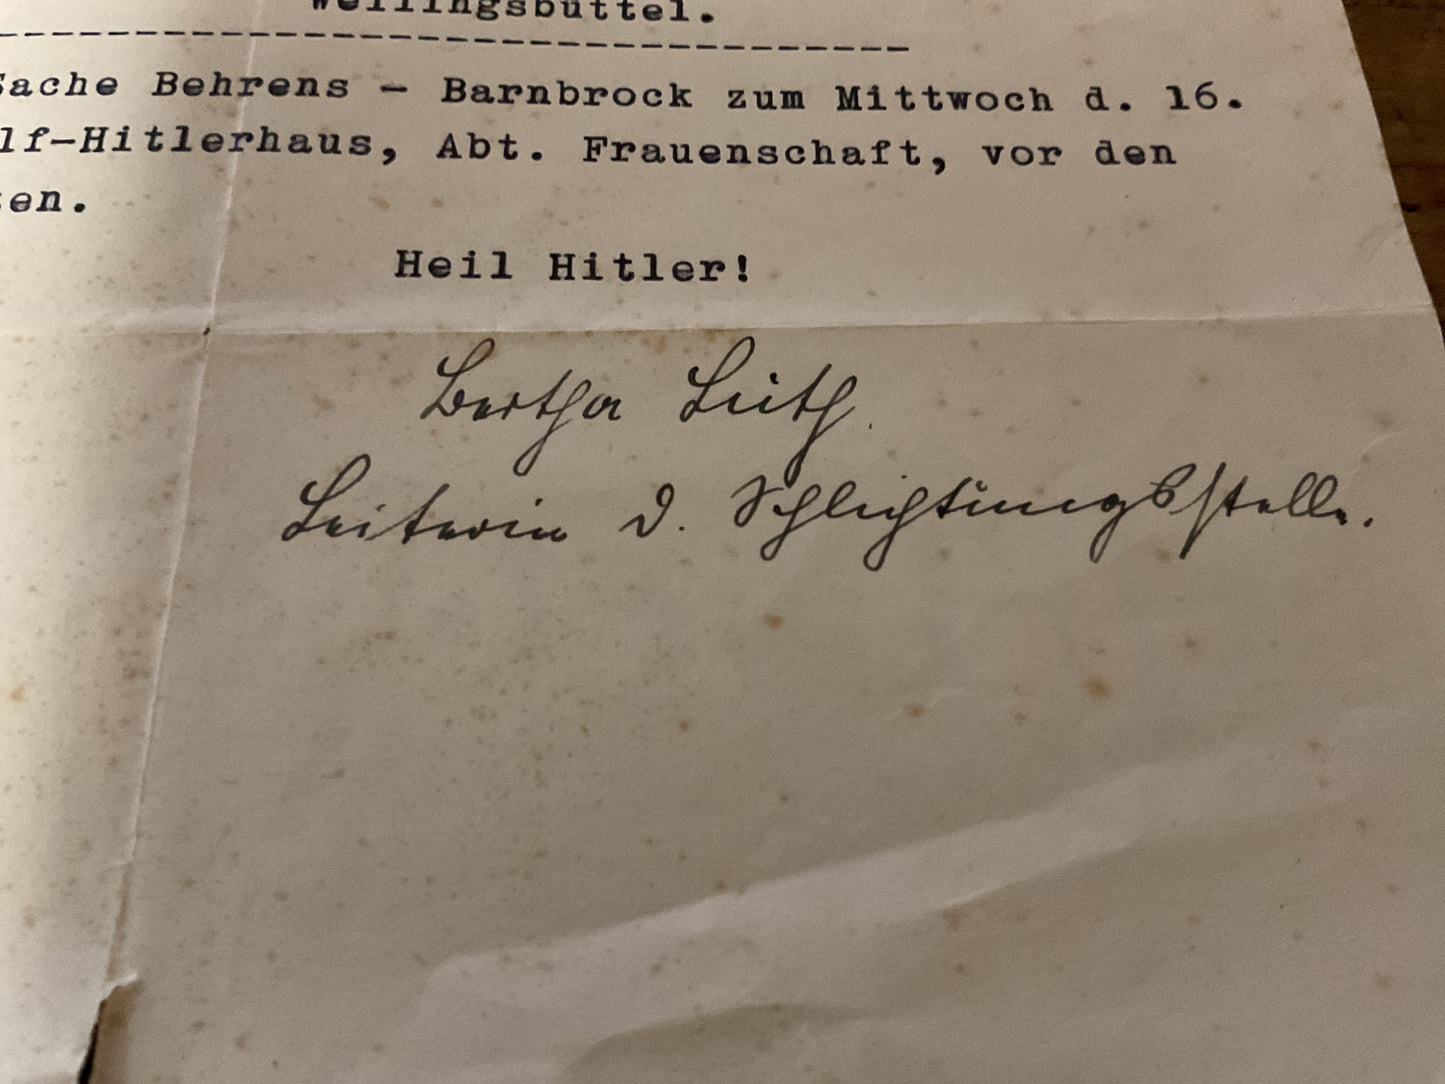 Wellingsbüttel.
Sache Behrens - Barnbrock zum Mittwoch d. 16.
lf-Hitlerhaus, Abt. Frauenschaft, vor den
en.
Heil Hitler!
Bertha Lüth.
Leiterin d. Schlichtungsstelle.